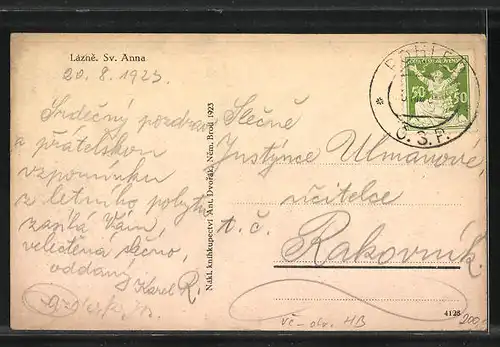 Lázně. Sv. Anna
20. 8. 1925
Srdečný pozdrav
a přátelskou
vzpomínku
z letního pobytu
zasílá Vám,
velectěná slečno,
oddaný
Karel R.
Nákl. knihkupectví Ant. Dvořák, Něm. Brod 1923
Slečně
Justýnce Ulmanové,
učitelce
t. č.
Rakovník.
50 50
Č. S. P.
4125
200,-